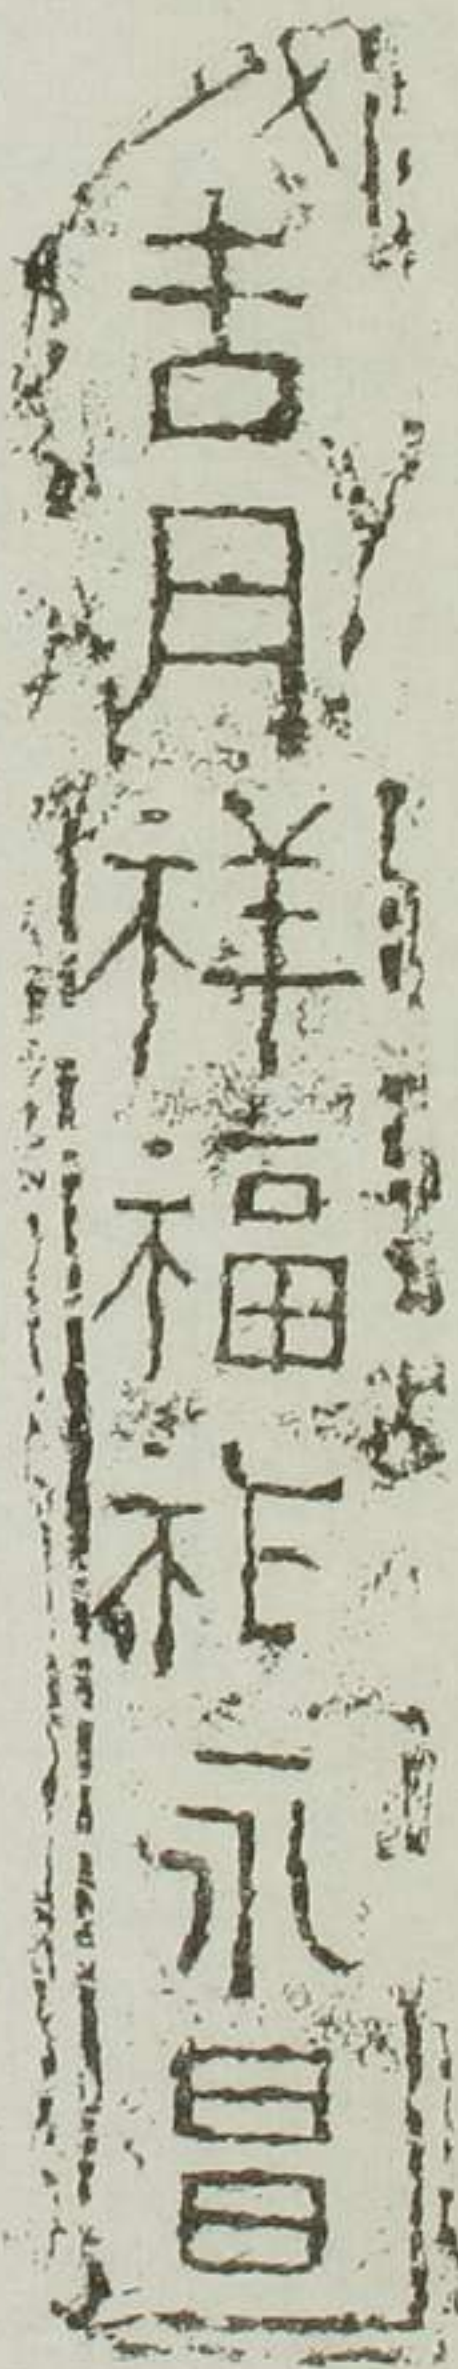 吉月祥福祚永昌